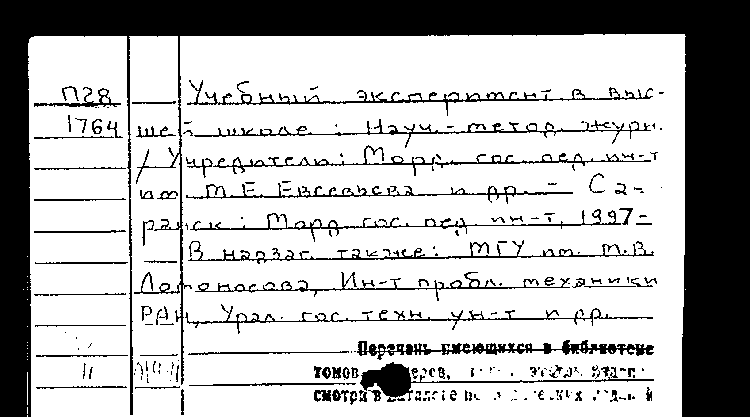 П28 Учебный эксперимент в выс-
1764 шей школе : Науч.-метод. журн.
/ Учредители : Морд. гос. пед. ин-т
им. М.Е. Евсевьева и др. - Са-
ранск : Морд. гос. пед. ин-т, 1997-
В надзаг. также: МГУ им. М.В.
Ломоносова, Ин-т пробл. механики
РАН, Урал. гос. техн. ун-т и др.
Перечень имеющихся в библиотеке
томов,
смотри в каталоге